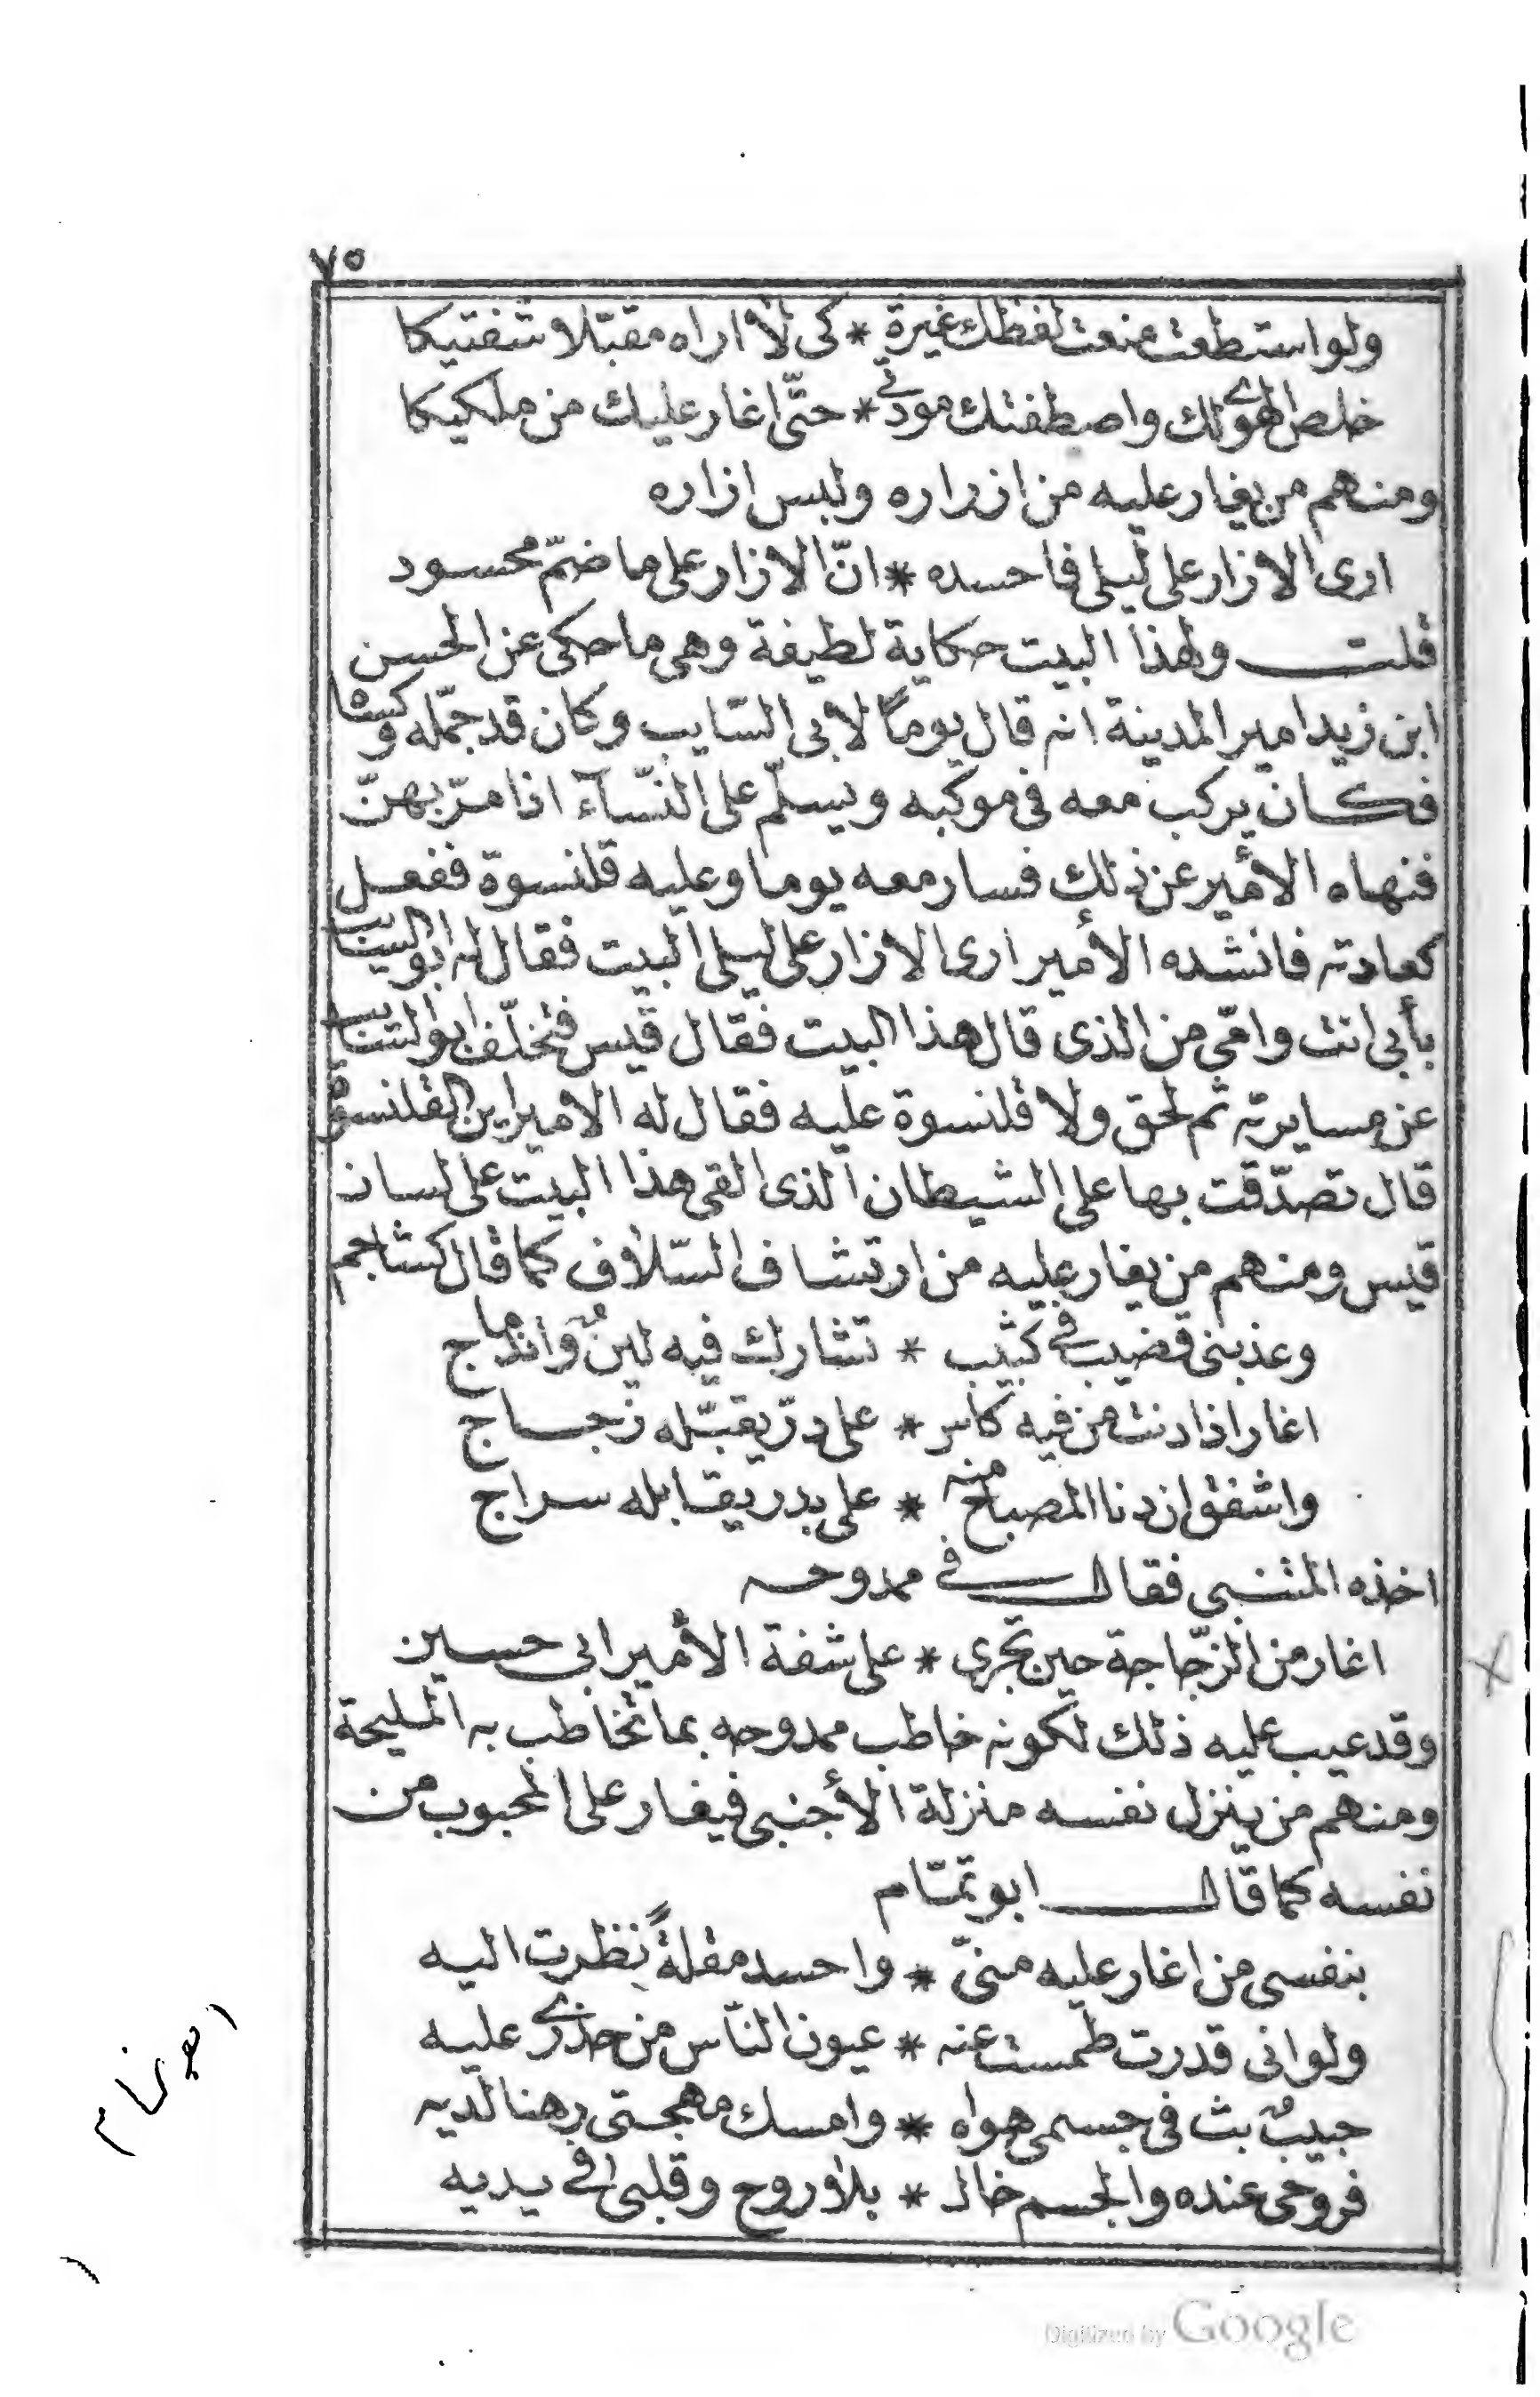 ٧٥
ولو استطعت منعت لفظك غيرة * كى لا اراه مقبّلا شفتيكا
خلص الهوى لك واصطفتك مودتى * حتّى اغار عليك من ملكيكا
ومنهم من يغار عليه من ازراره ولبس ازاره
ارى الازار على ليلى فاحسده * انّ الازار على ما ضمّ محسود
قلت ولهذا البيت حكاية لطيفة وهى ما حكى عن الحسن
ابن زيد امير المدينة انه قال يوماً لابى السّايب وكان قد جمّله وكساه
فكان يركب معه فى موكبه ويسلّم على النّسآء اذا مرّ بهنّ
فنهاه الأمير عن ذلك فسار معه يوما وعليه قلنسوة ففعل
كعادته فانشده الأمير ارى الازار على ليلى البيت فقال له ابو السّايب
بأبى انت وامّى من الذى قال هذا البيت فقال قيس فتخلّف ابو السّايب
عن مسايرته ثم لحق ولا قلنسوة عليه فقال له الامير اين القلنسوة
قال تصدّقت بها على الشيطان الذى القى هذا البيت على لسان
قيس ومنهم من يغار عليه من ارتشاف السّلاف كما قال كشاجم
وعذبنى قضيب فى كثيب * تشارك فيه لينٌ واندماج
اغار اذا دنت من فيه كاس * على درّ يقبّله زجاج
واشفق ان دنا المصباح منه * على بدر يقابله سراج
اخذه المتنبى فقال فى ممدوحه
اغار من الزّجاجة حين تجرى * على شفة الأمير ابى حسين
وقد عيب عليه ذلك لكونه خاطب ممدوحه بما تخاطب به المليحة
ومنهم من ينزل نفسه منزلة الأجنبى فيغار على المحبوب من
نفسه كما قال ابو تمّام
بنفسى من اغار عليه منّى * واحسد مقلةً نظرت اليه
ولو انى قدرت طمست عنه * عيون النّاس من حذرى عليه
حبيبٌ بث فى جسمى هواه * وامسك مهجتى رهنا لديه
فروحى عنده والجسم خال * بلا روح وقلبى فى يديه
Digitized by Google